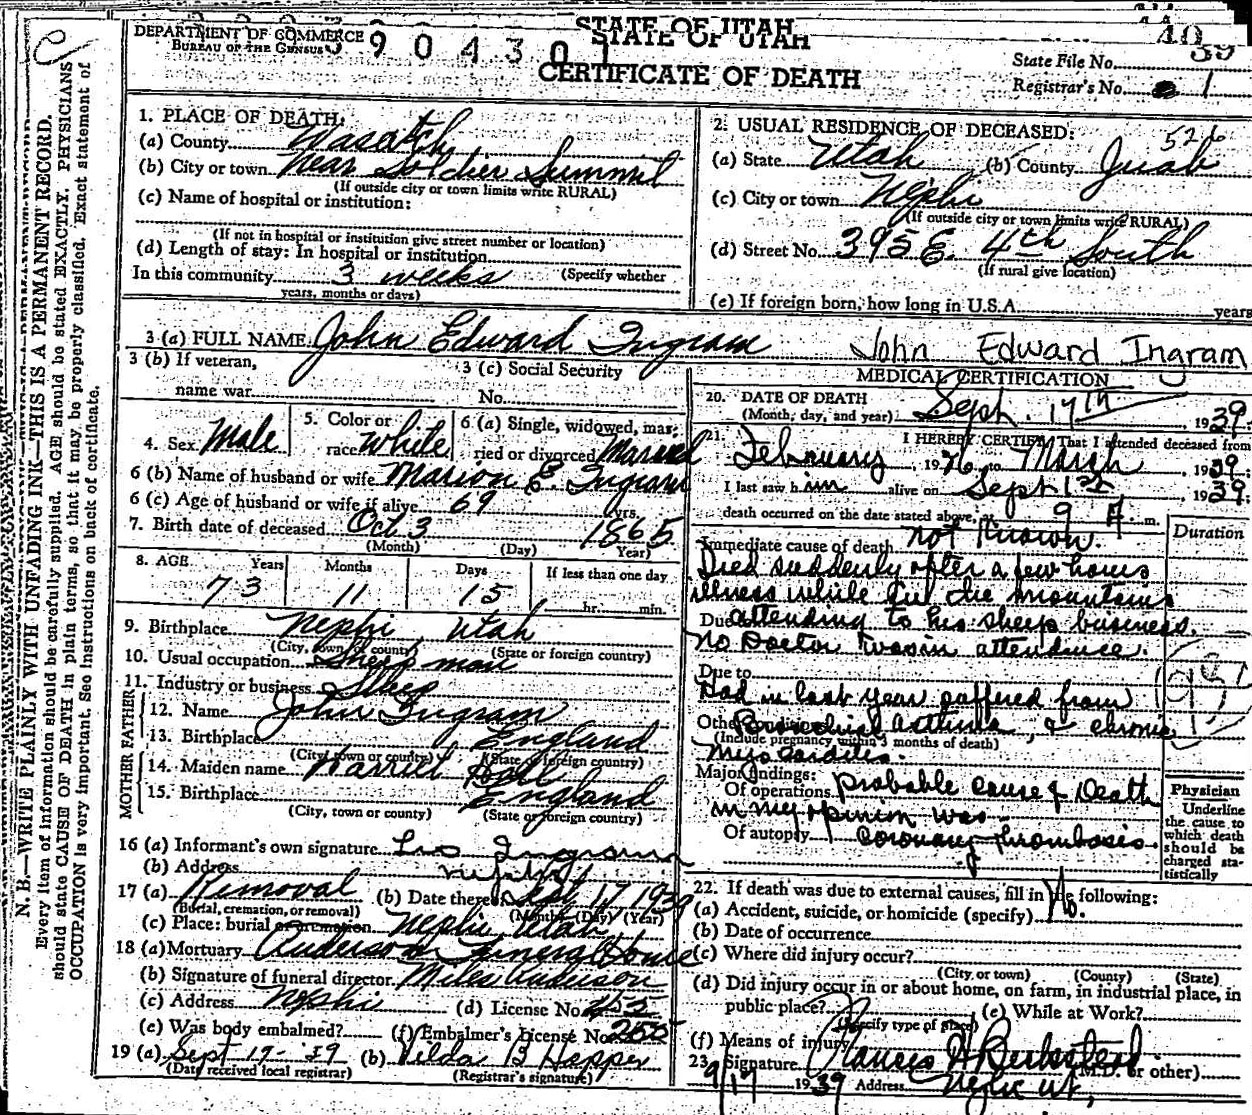 DEPARTMENT OF COMMERCE
BUREAU OF THE CENSUS
3 9 0 4 3 0 1
STATE OF UTAH
STATE OF UTAH
CERTIFICATE OF DEATH
40
39
State File No.
Registrar's No. 1
N. B.—WRITE PLAINLY WITH UNFADING INK—THIS IS A PERMANENT RECORD.
Every item of information should be carefully supplied. AGE should be stated EXACTLY. PHYSICIANS
should state CAUSE OF DEATH in plain terms, so that it may be properly classified. Exact statement of
OCCUPATION is very important. See instructions on back of certificate.
1. PLACE OF DEATH:
(a) County Wasatch
(b) City or town Near Soldier Summit
(If outside city or town limits write RURAL)
(c) Name of hospital or institution:
(If not in hospital or institution give street number or location)
(d) Length of stay: In hospital or institution
In this community 3 weeks (Specify whether
years, months or days)
2. USUAL RESIDENCE OF DECEASED:
526
(a) State Utah (b) County Juab
(c) City or town Nephi
(If outside city or town limits write RURAL)
(d) Street No. 395 E. 4th South
(If rural give location)
(e) If foreign born, how long in U.S.A. years
3 (a) FULL NAME John Edward Ingram John Edward Ingram
3 (b) If veteran,
name war
3 (c) Social Security
No.
4. Sex Male
5. Color or
race White
6 (a) Single, widowed, mar-
ried or divorced Married
6 (b) Name of husband or wife Marion E. Ingram
6 (c) Age of husband or wife if alive 69 yrs.
7. Birth date of deceased Oct 3 1865
(Month) (Day) Year)
8. AGE Years Months Days If less than one day
73 11 15 hr. min.
9. Birthplace Nephi, Utah
(City, town or county) (State or foreign country)
10. Usual occupation Sheep man
11. Industry or business Sheep
FATHER
12. Name John Ingram
13. Birthplace England
(City, town or county) (State or foreign country)
MOTHER
14. Maiden name Harriet Hall
15. Birthplace England
(City, town or county) (State or foreign country)
16 (a) Informant's own signature Leo Ingram
(b) Address Nephi
17 (a) Removal (b) Date thereof Sept 17 1939
(Burial, cremation, or removal) (Month) (Day) (Year)
(c) Place: burial or cremation Nephi, Utah
18 (a) Mortuary Anderson Funeral Home
(b) Signature of funeral director Miles Anderson
(c) Address Nephi (d) License No. 255
(e) Was body embalmed? (f) Embalmer's License No.
19 (a) Sept 19-39 (b) Velda B Hopper
(Date received local registrar) (Registrar's signature)
MEDICAL CERTIFICATION
20. DATE OF DEATH
(Month, day, and year) Sept. 17th, 1939.
21. I HEREBY CERTIFY, That I attended deceased from
February, 1926, to March, 1939.
I last saw him alive on Sept 1st 1939.
death occurred on the date stated above, 9 A. m.
Duration
Immediate cause of death not known.
Died suddenly after a few hours
illness while in the mountains
Due to attending to his sheep business.
No Doctor was in attendance.
Due to
Had in last year suffered from
Other conditions Bronchial asthma, & chronic
(Include pregnancy within 3 months of death)
Myocarditis.
Major findings:
Of operations Probable cause of Death
in my opinion was
Of autopsy Coronary Thrombosis.
Physician
Underline
the cause to
which death
should be
charged sta-
tistically
22. If death was due to external causes, fill in the following:
(a) Accident, suicide, or homicide (specify) No.
(b) Date of occurrence
(c) Where did injury occur?
(City or town) (County) (State)
(d) Did injury occur in or about home, on farm, in industrial place, in
public place? (e) While at Work?
(Specify type of place)
(f) Means of injury
23. Signature (M.D. or other)
9/17 1939 Address Nephi Ut.